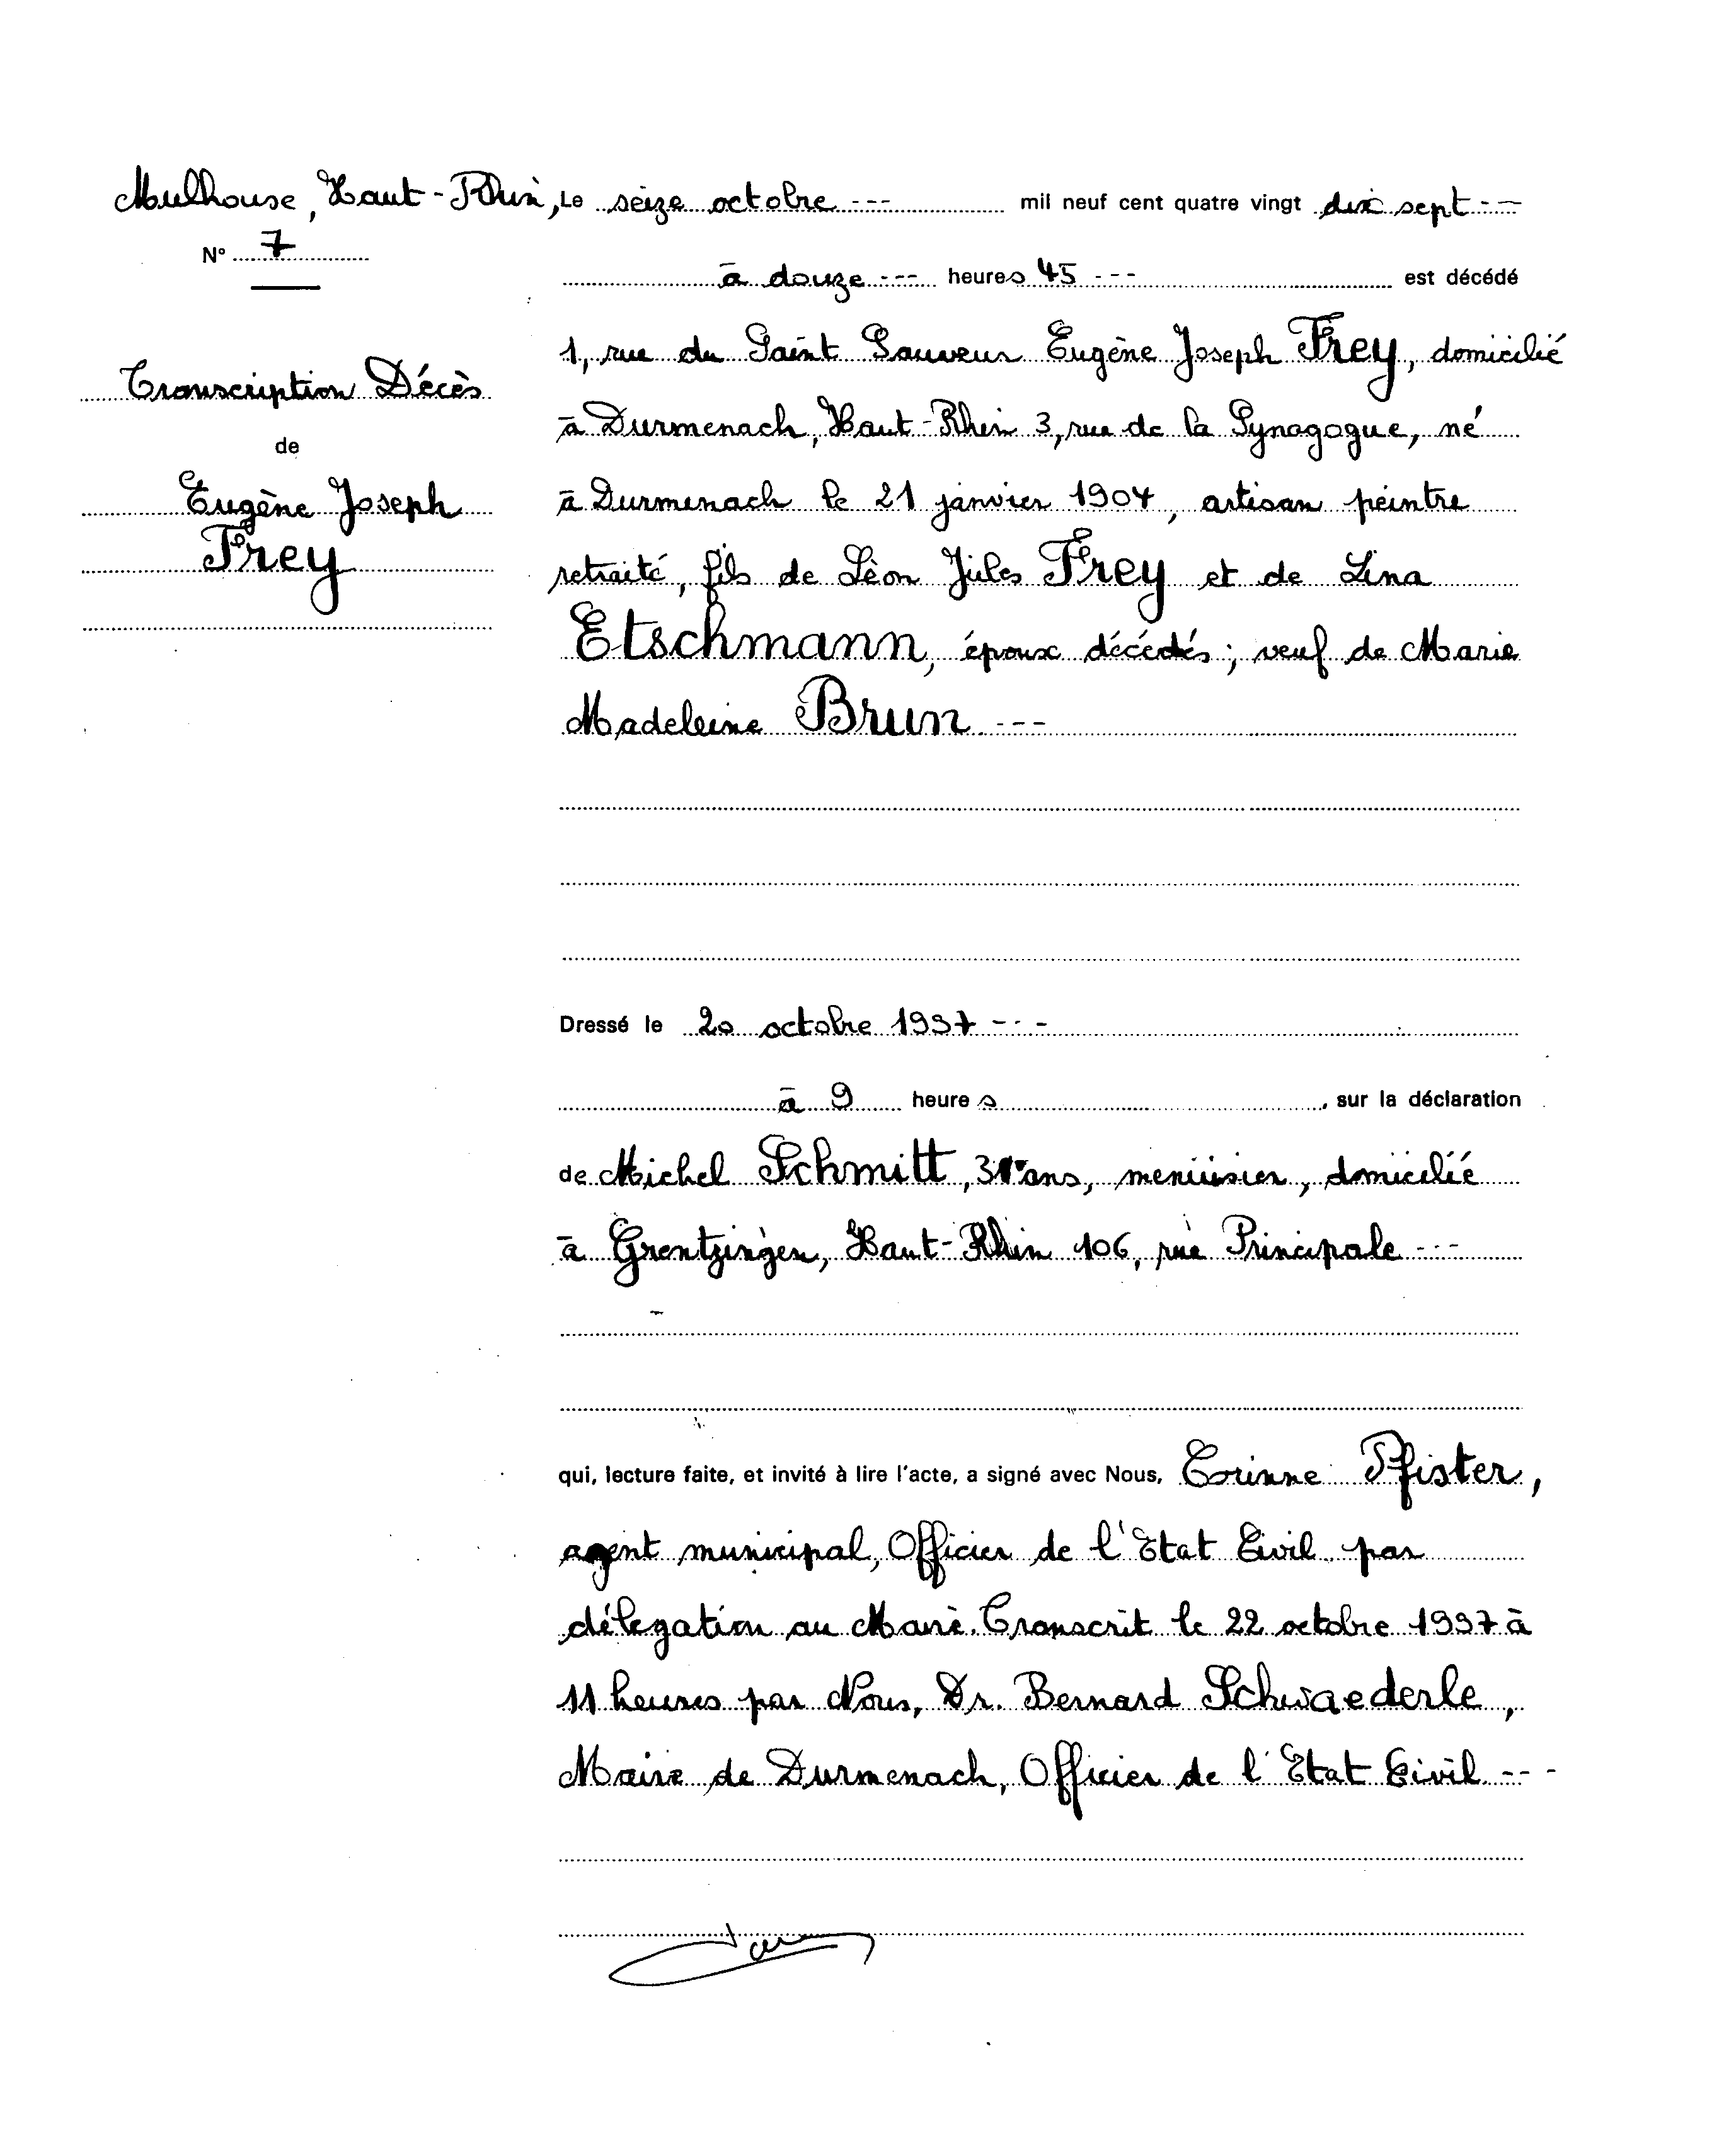 Mulhouse, Haut-Rhin, Le seize octobre --- mil neuf cent quatre vingt dix sept --
N° 7
à douze --- heures 45 --- est décédé
1, rue du Saint Sauveur Eugène Joseph Frey, domicilié
Transcription Décès
à Durmenach, Haut-Rhin 3, rue de la Synagogue, né
de
Eugène Joseph
à Durmenach le 21 janvier 1904, artisan peintre
Frey
retraité, fils de Léon Jules Frey et de Lina
Etschmann, époux décédés; veuf de Marie
Madeleine Brun ---
Dressé le 20 octobre 1997 ---
à 9 heures, sur la déclaration
de Michel Schmitt, ans, menuisier, domicilié
à Grentzingen, Haut-Rhin 106, rue Principale ---
qui, lecture faite, et invité à lire l'acte, a signé avec Nous, Corinne Pfister,
agent municipal, Officier de l'Etat Civil par
délégation au Maire. Transcrit le 22 octobre 1997 à
11 heures par Nous, Dr. Bernard Schwaederle,
Maire de Durmenach, Officier de l'Etat Civil ---